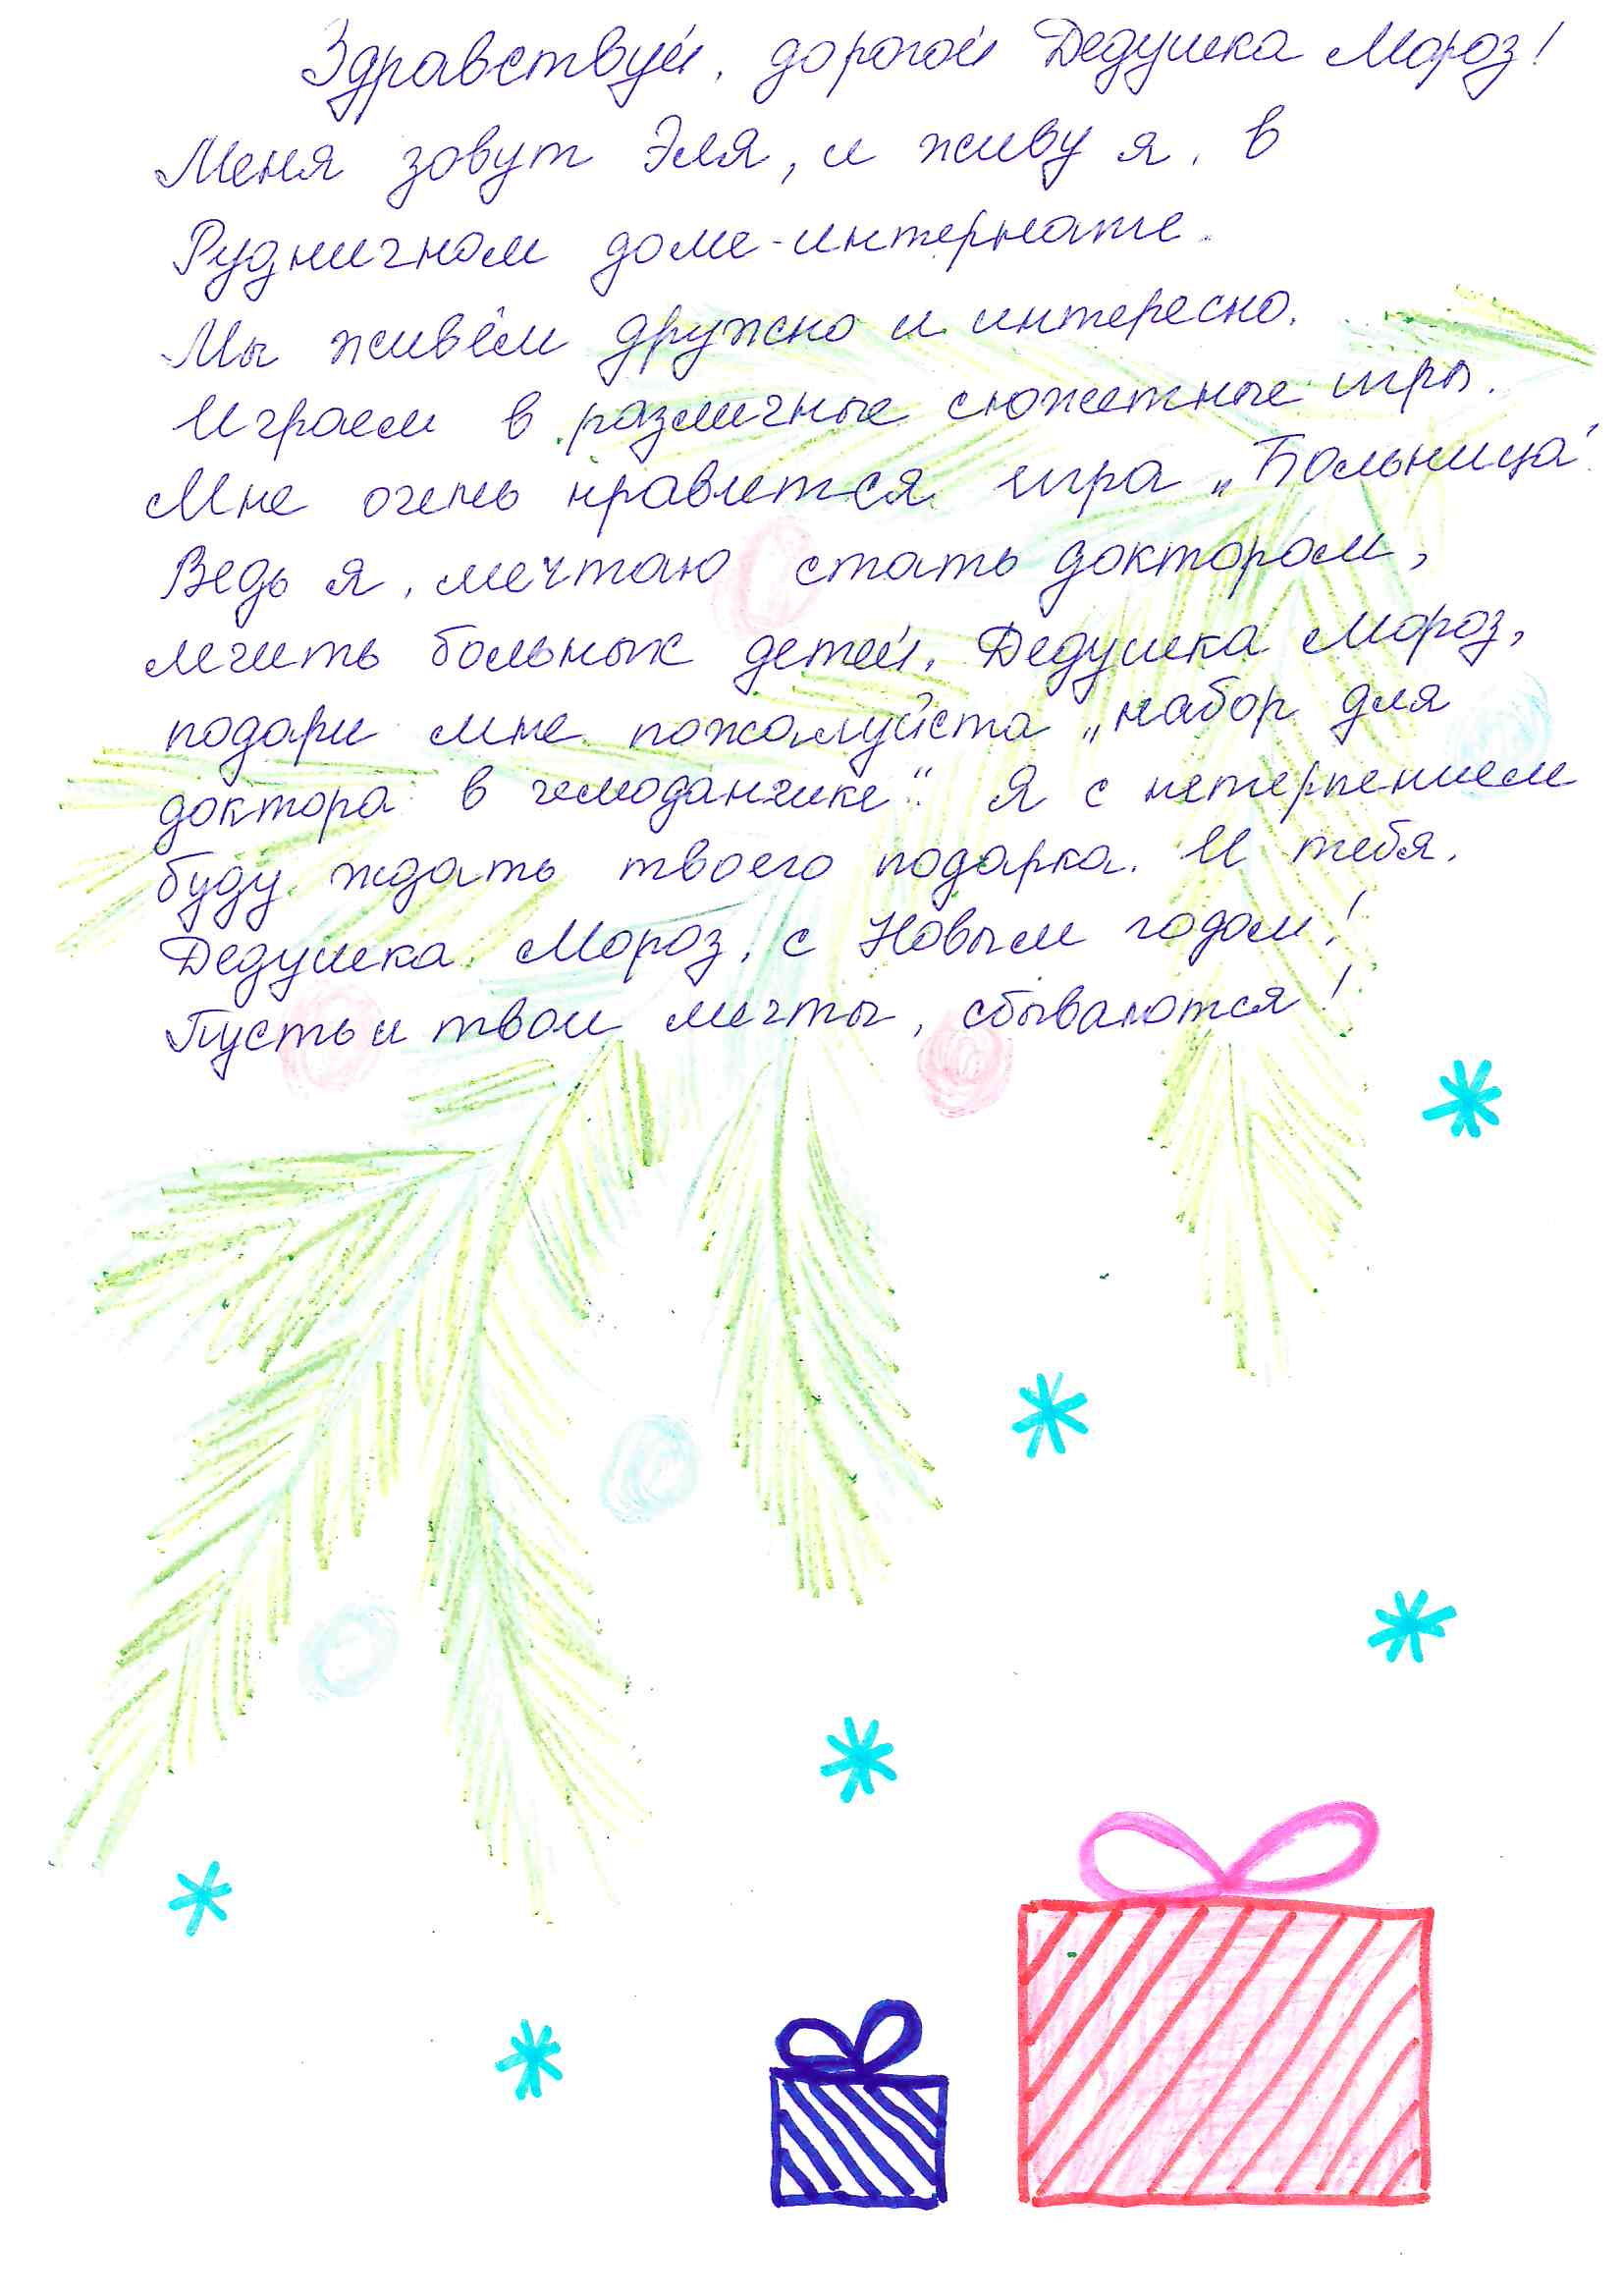 Здравствуй, дорогой Дедушка Мороз!
Меня зовут Эля, и живу я, в
Рудничном доме-интернате.
Мы живём дружно и интересно.
Играем в различные сюжетные игры.
Мне очень нравится игра „Больница“.
Ведь я, мечтаю стать доктором,
лечить больных детей. Дедушка Мороз,
подари мне пожалуйста „набор для
доктора в чемоданчике“. Я с нетерпением
буду ждать твоего подарка. И тебя,
Дедушка Мороз, с Новым годом!
Пусть и твои мечты, сбываются!